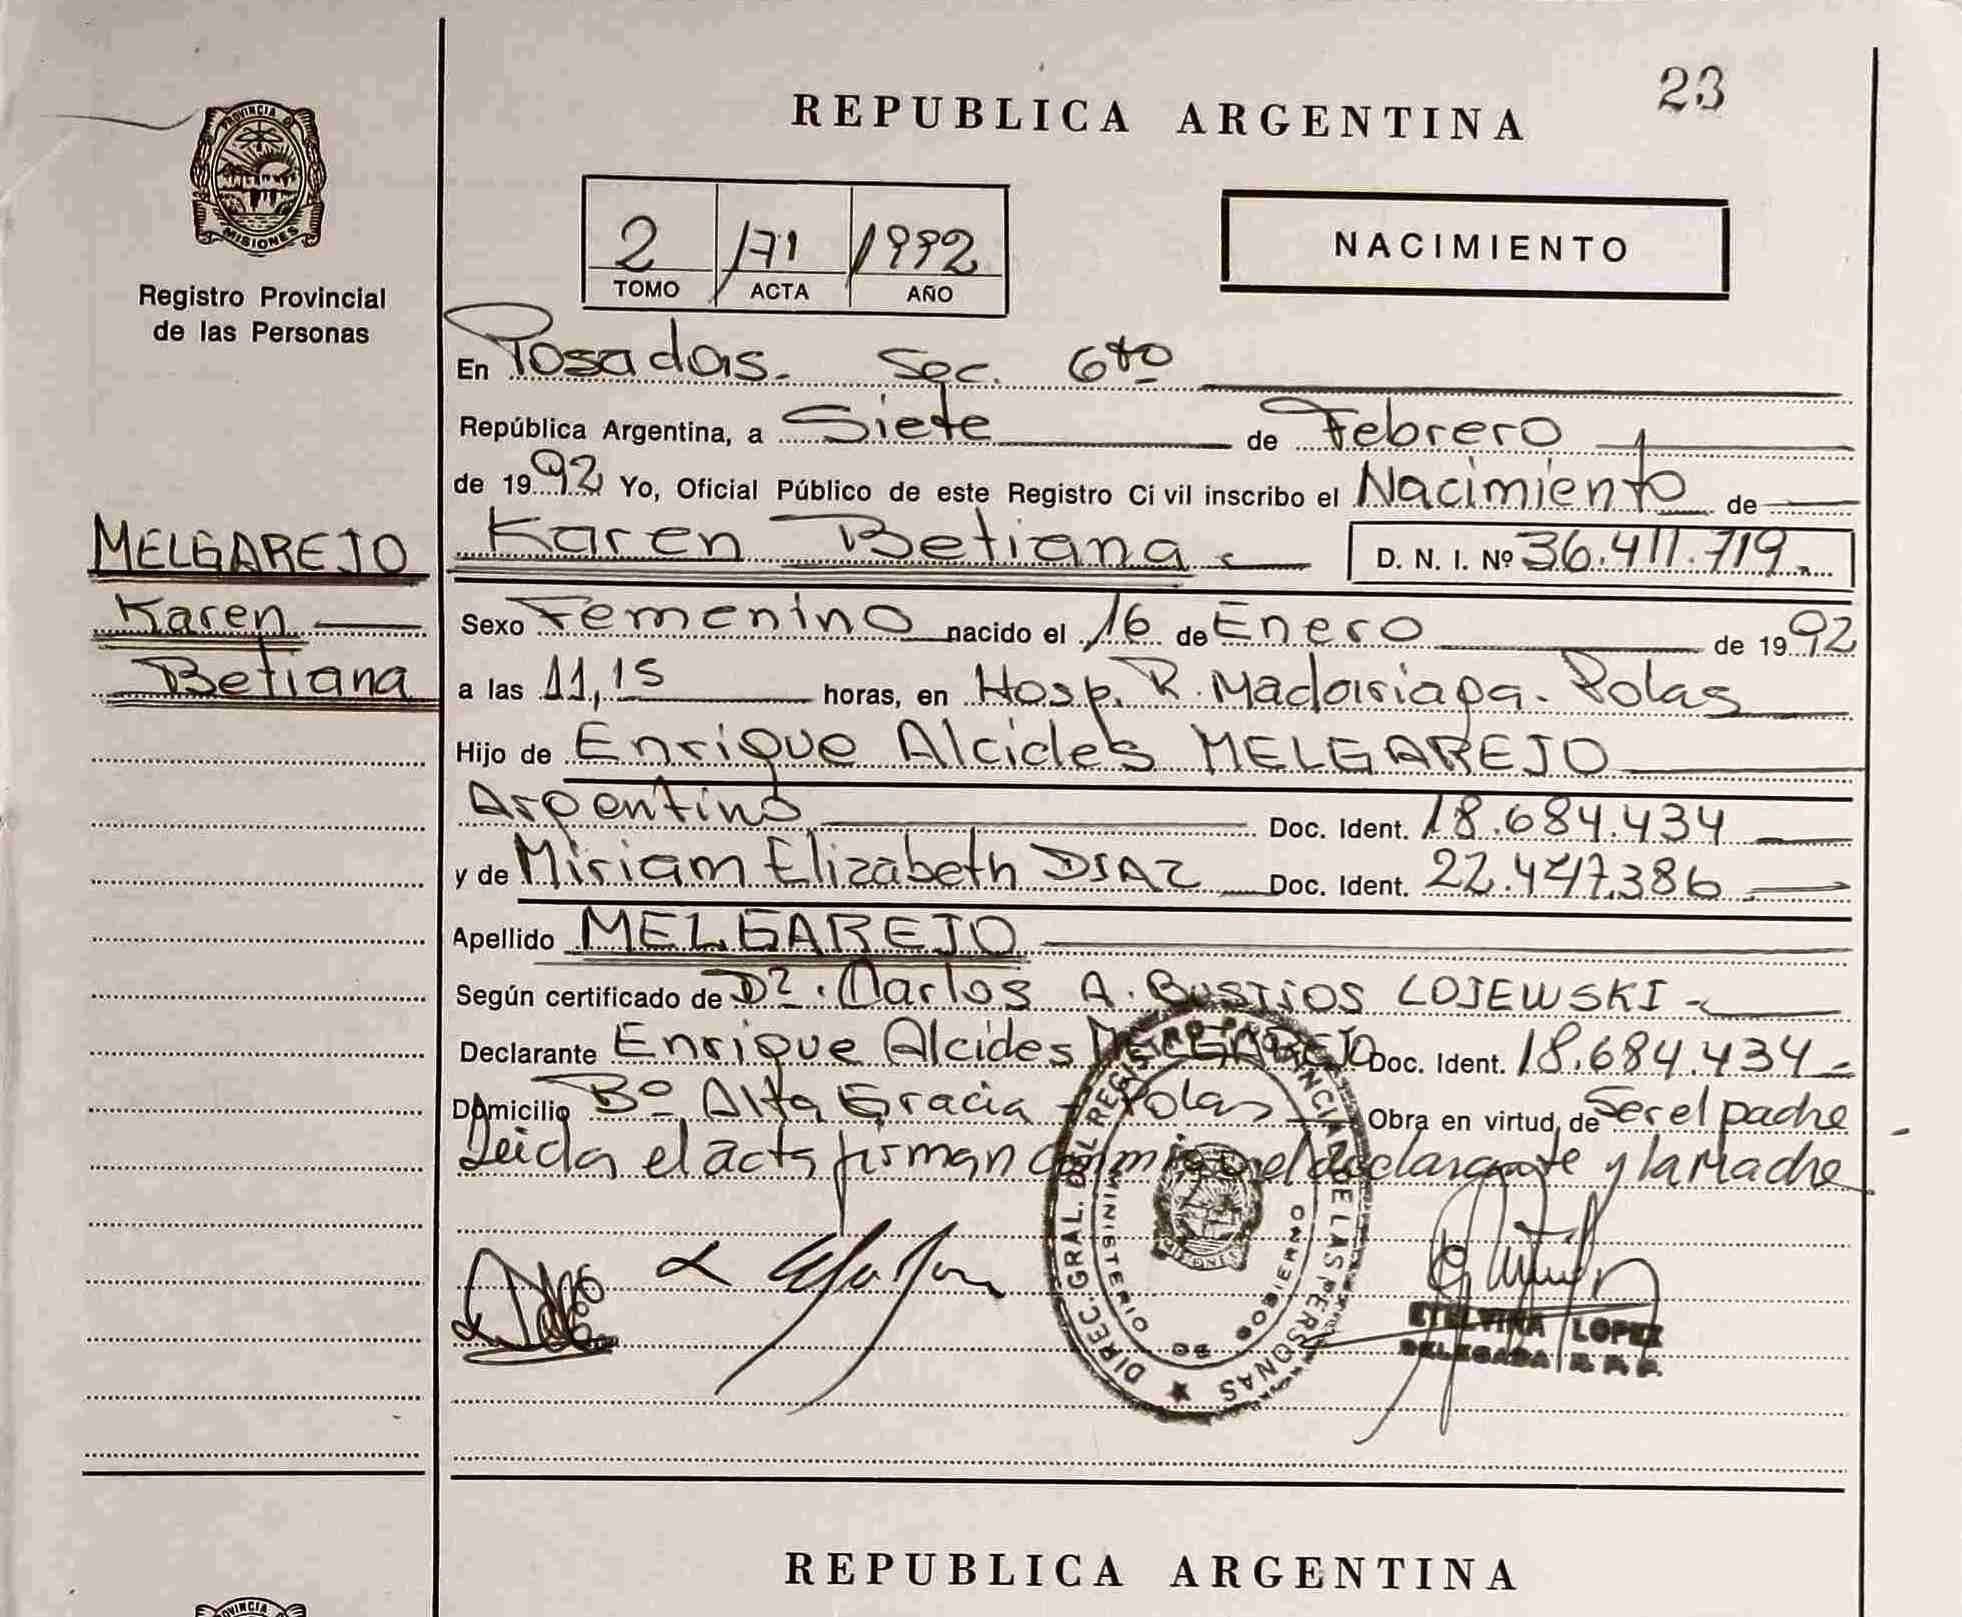 23
REPUBLICA ARGENTINA
PROVINCIA D
MISIONES
Registro Provincial
de las Personas
2 171 1992
TOMO ACTA AÑO
NACIMIENTO
En Posadas. Sec. 6to
República Argentina, a Siete de Febrero
de 1992 Yo, Oficial Público de este Registro Civil inscribo el Nacimiento de
MELGAREJO
Karen
Betiana
Karen Betiana D. N. I. Nº 36.411.719.
Sexo Femenino nacido el 16 de Enero de 1992
a las 11,15 horas, en Hosp. R. Madariaga. Pdas
Hijo de Enrique Alcides MELGAREJO
Argentino Doc. Ident. 18.684.434
y de Miriam Elizabeth DIAZ Doc. Ident. 22.447.386
Apellido MELGAREJO
Según certificado de Dr. Carlos A. BUSTIOS LOJEWSKI
Declarante Enrique Alcides MELGAREJO Doc. Ident. 18.684.434
Domicilio Bº Alta Gracia - Pdas Obra en virtud de Ser el padre
Leida el acta firman conmigo el declarante y la Madre
DIREC. GRAL. DEL REGISTRO PROVINCIAL DE LAS PERSONAS
MINISTERIO DE GOBIERNO
MISIONES
ETELVINA LOPEZ
DELEGADA R. P. P.
REPUBLICA ARGENTINA
PROVINCIA D